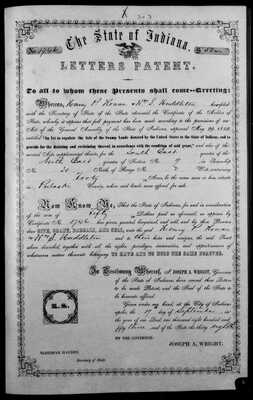 The State of Indiana.
LETTERS PATENT.
To all to whom these Presents shall come—Greeting:
Whereas, Henry P Rowan & Wm S Huddleston deposited
with the Secretary of State of the State aforesaid the Certificate of the Auditor of
State, whereby it appears that full payment has been made according to the provisions of an
Act of the General Assembly of the State of Indiana, approved May 29, 1852,
entitled "An Act to regulate the sale of the Swamp Lands donated by the United States to the State of Indiana, and to
provide for the draining and reclaiming thereof, in accordance with the condition of said grant,"
South East
North East quarter of Section No. 9 in Township
No. 30 North, of Range No. 2 containing
Forty Acres, be the same more or less situate in
Pulaski County, when said lands were offered for sale.
Now Know Ye, That the State of Indiana, for and in consideration
of the sum of Fifty Dollars paid as aforesaid, as appears by
Certificate No. 1746 has given, granted, bargained and sold, and by these Presents
does GIVE, GRANT, BARGAIN, AND SELL, unto the said Henry P Rowan
& Wm S Huddleston and to their heirs and assigns, the said Tract
above described, together with all the rights, privileges, immunities, and appurtenances of
whatsoever nature thereunto belonging, TO HAVE AND TO HOLD THE SAME FOREVER.
In Testimony Whereof, I, JOSEPH A. WRIGHT, Governor
of the State of Indiana, have caused these Letters
to be made Patent, and the Seal of the State to
be hereunto affixed.
Given under my hand, at the City of Indianapolis,
the 19 day of September in
the year of our Lord one thousand eight hundred and
fifty three and of the State the thirty eighth
BY THE GOVERNOR:
JOSEPH A. WRIGHT.
L. S.
NEHEMIAH HAYDEN,
Secretary of State.